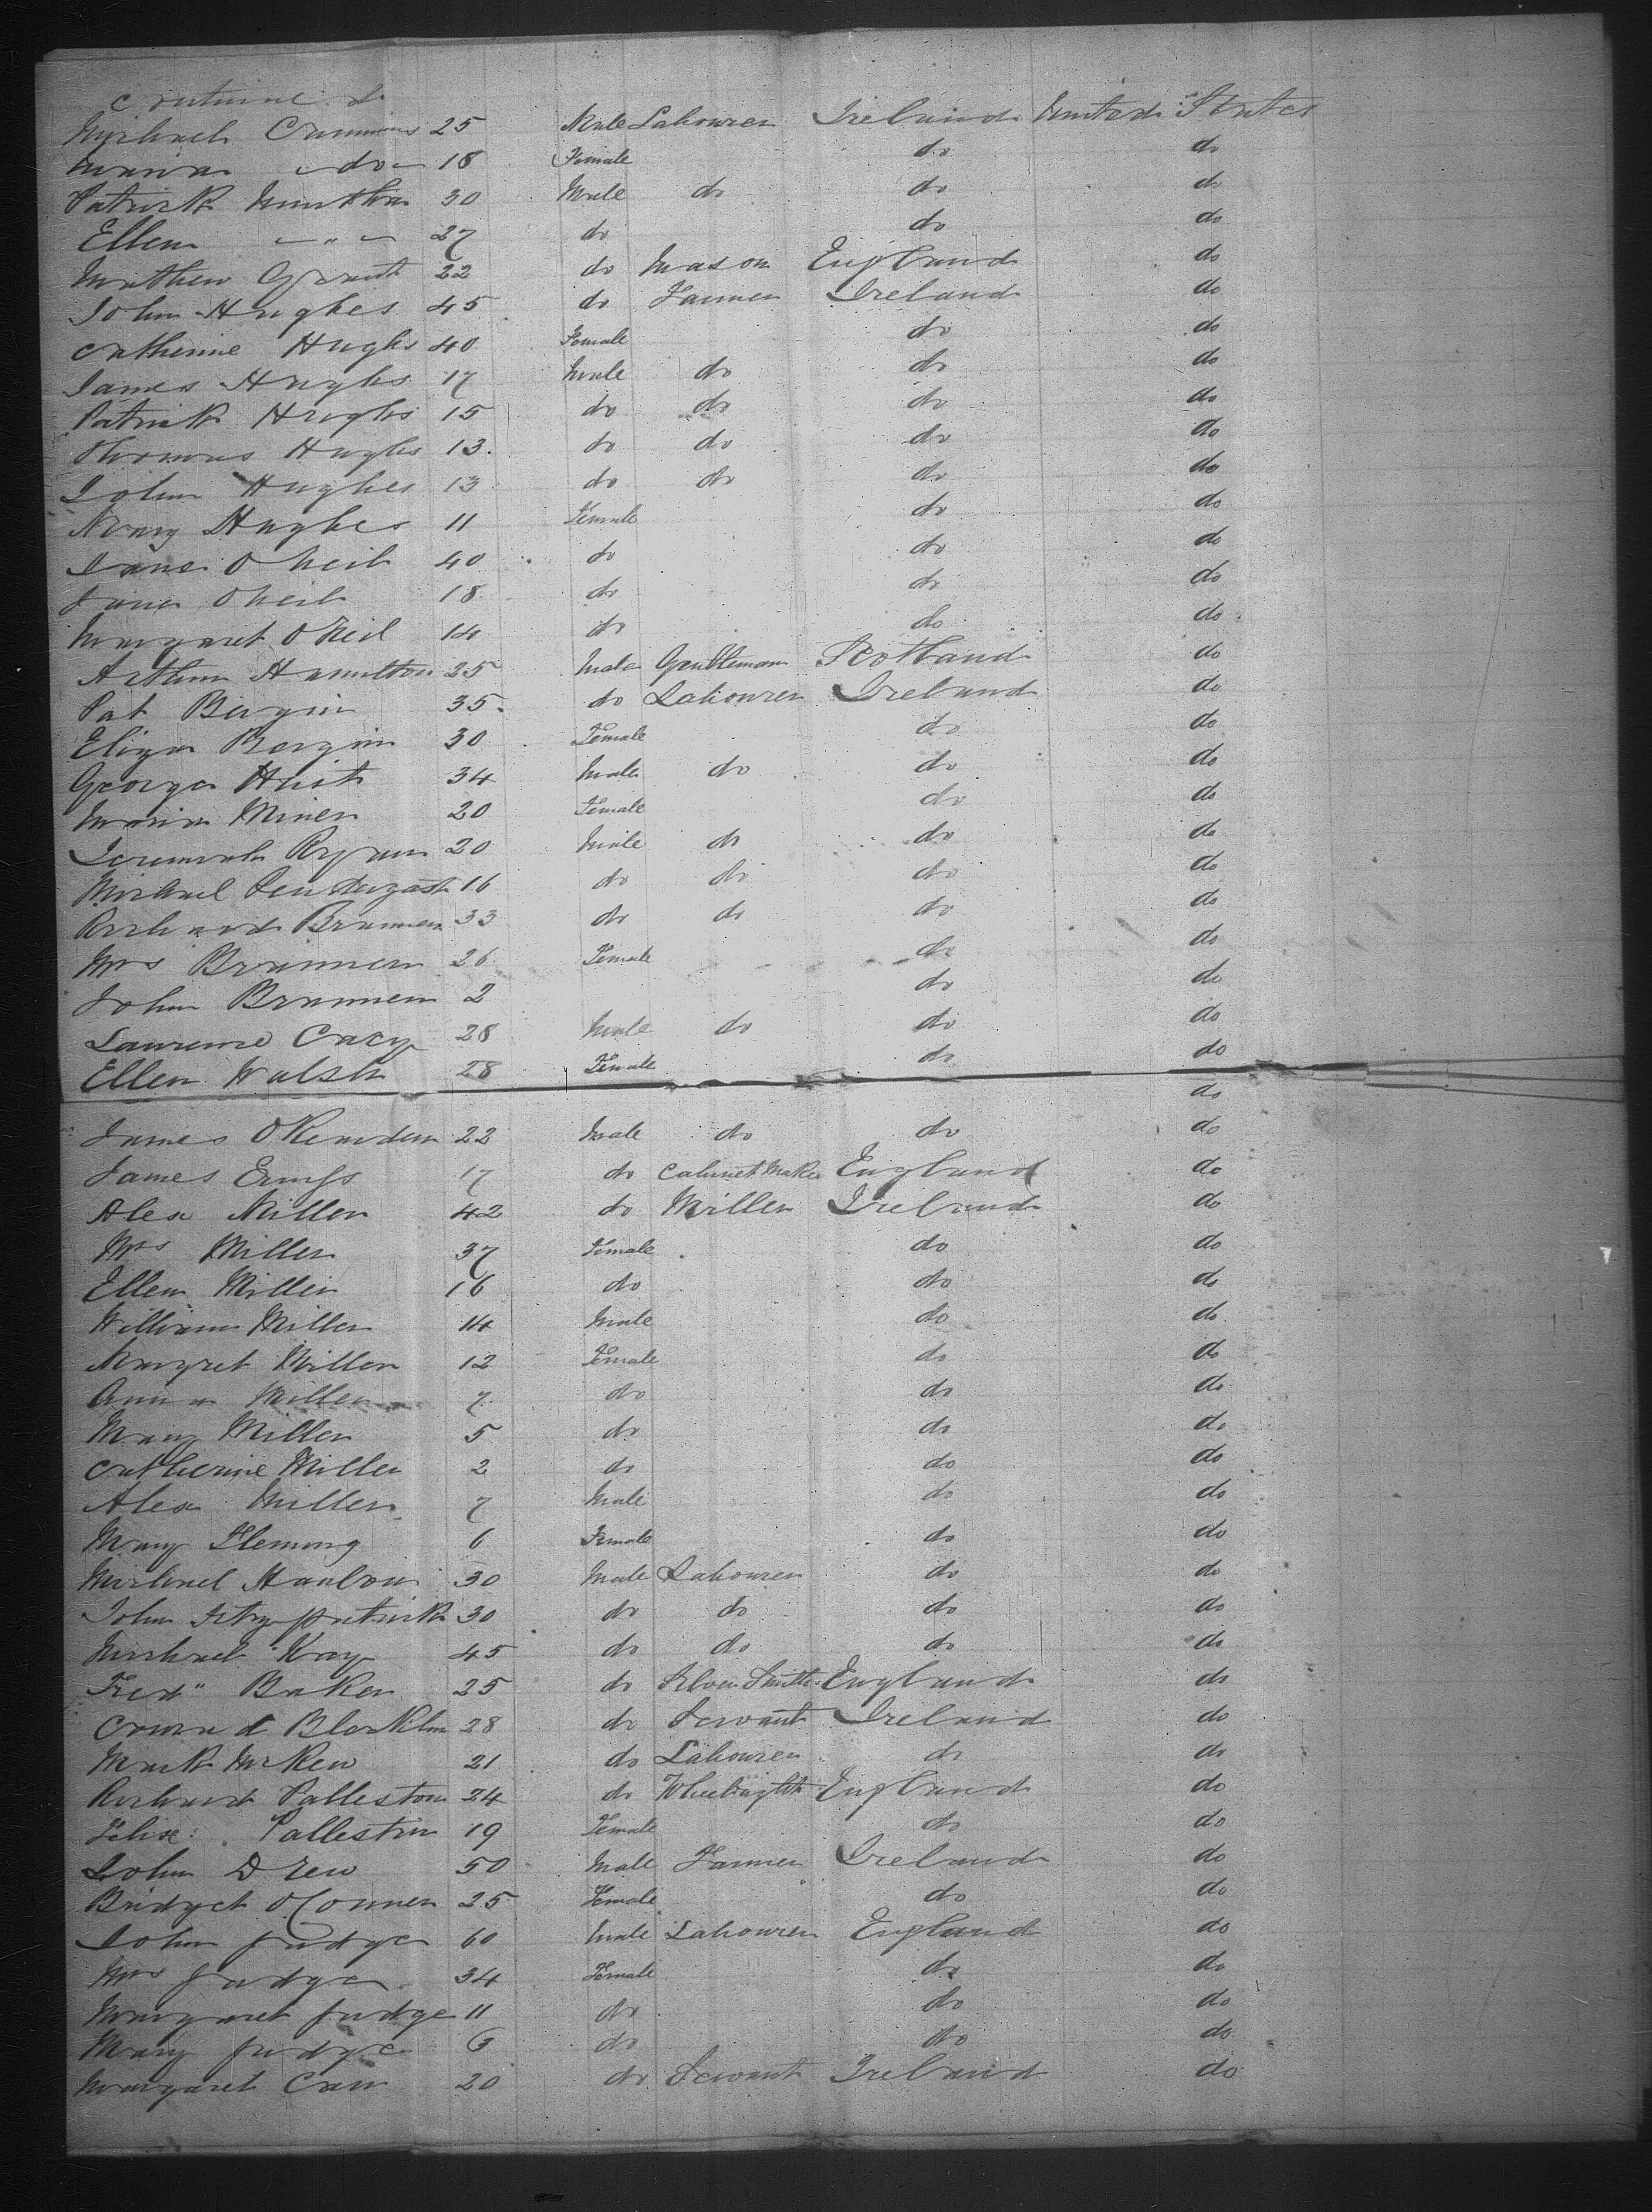 Continued
Michael Cummins 25 Male Labourer Ireland United States
Maria -do- 18 Female do do
Patrick 30 Male do do do
Ellen - " - 27 do do do
Mathew Grant 22 do Mason England do
John Hughes 45 do Farmer Ireland do
Catherine Hughs 40 Female do do
James Hughs 17 Male do do do
Patrick Hughs 15 do do do do
Thomas Hughs 13 do do do do
John Hughes 13 do do do do
Mary Hughes 11 Female do do
Jane O Neil 40 do do do
Jane O Neil 18 do do do
Margaret O Neil 14 do do do
Arthur Hamilton 25 Male Gentleman Scotland do
Pat Bergin 35 do Labourer Ireland do
Eliza Bergin 30 Female do do
George 34 Male do do do
Maria Miner 20 Female do do
Jeremiah Ryan 20 Male do do do
Michael 16 do do do do
Richard Brannen 33 do do do do
Mrs Brannen 26 Female do do
John Brannen 2 do do
Laurence Cacy 28 Male do do do
Ellen Walsh 28 Female do do
do
James 22 Male do do do
James 17 do Cabinet Maker England do
Alex Miller 42 do Miller Ireland do
Mrs Miller 37 Female do do
Ellen Miller 16 do do do
William Miller 14 Male do do
Margret Miller 12 Female do do
Anna Miller 7 do do do
Mary Miller 5 do do do
Catherine Miller 2 do do do
Alex Miller 7 Male do do
Mary Fleming 6 Female do do
Michael Hanlon 30 Male Labourer do do
John Fitzpatrick 30 do do do do
Michael Kay 45 do do do do
Fred" Baker 25 do Silver Smith England do
28 do Servant Ireland do
Mark McKew 21 do Labourer do do
Richard Palleston 24 do Wheelwright England do
Palleston 19 Female do do
John Drew 50 Male Farmer Ireland do
Bridget O Conner 25 Female do do
John Judge 60 Male Labourer England do
Mrs Judge 34 Female do do
Margaret Judge 11 do do do
Mary Judge 6 do do do
Margaret Carr 20 do Servant Ireland do